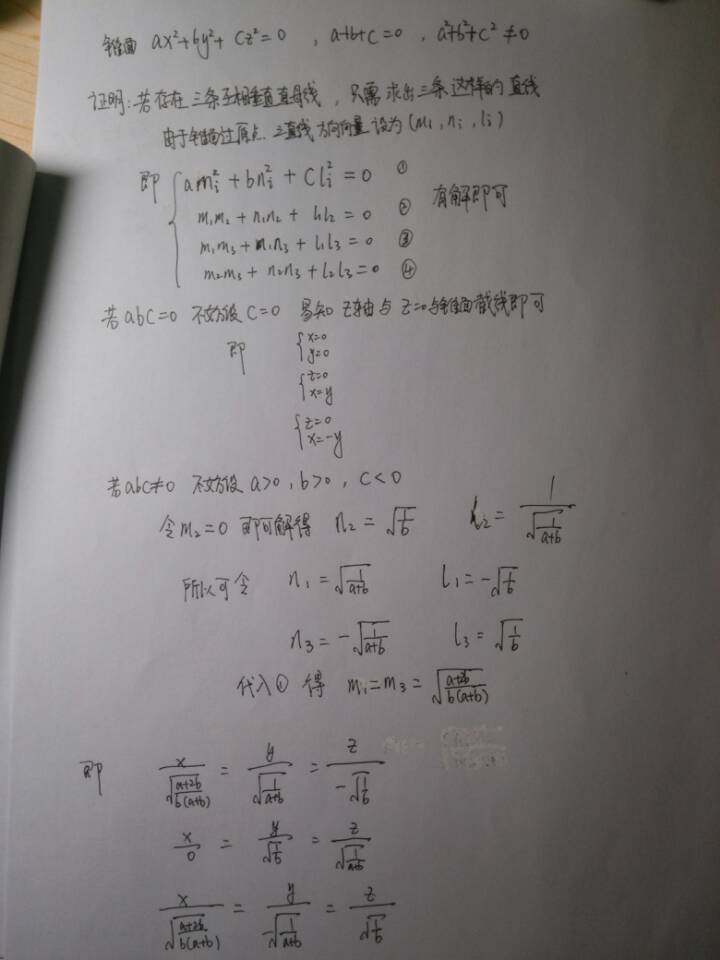 锥面 ax²+by²+cz²=0 , a+b+c=0 , a²+b²+c²≠0
证明:若存在三条互相垂直直母线,只需求出三条这样的直线
由于锥面过原点.三直线方向向量设为(mᵢ,nᵢ,lᵢ)
即 { amᵢ²+bnᵢ²+clᵢ²=0 ①
m₁m₂+n₁n₂+l₁l₂=0 ② 有解即可
m₁m₃+n₁n₃+l₁l₃=0 ③
m₂m₃+n₂n₃+l₂l₃=0 ④
若abc=0 不妨设c=0 易知 z轴与z=0与锥面截线即可
即 { x=0
y=0
{ z=0
x=y
{ z=0
x=-y
若abc≠0 不妨设 a>0, b>0, c<0
令m₂=0 即可解得 n₂=√(1/b) l₂=1/√(1/(a+b))
所以可令 n₁=√(1/(a+b)) l₁=-√(1/b)
n₃=-√(1/(a+b)) l₃=√(1/b)
代入① 得 m₁=m₃=√((a+2b)/(b(a+b)))
即 x/√((a+2b)/(b(a+b))) = y/√(1/(a+b)) = z/-√(1/b)
x/0 = y/√(1/b) = z/√(1/(a+b))
x/√((a+2b)/(b(a+b))) = y/-√(1/(a+b)) = z/√(1/b)